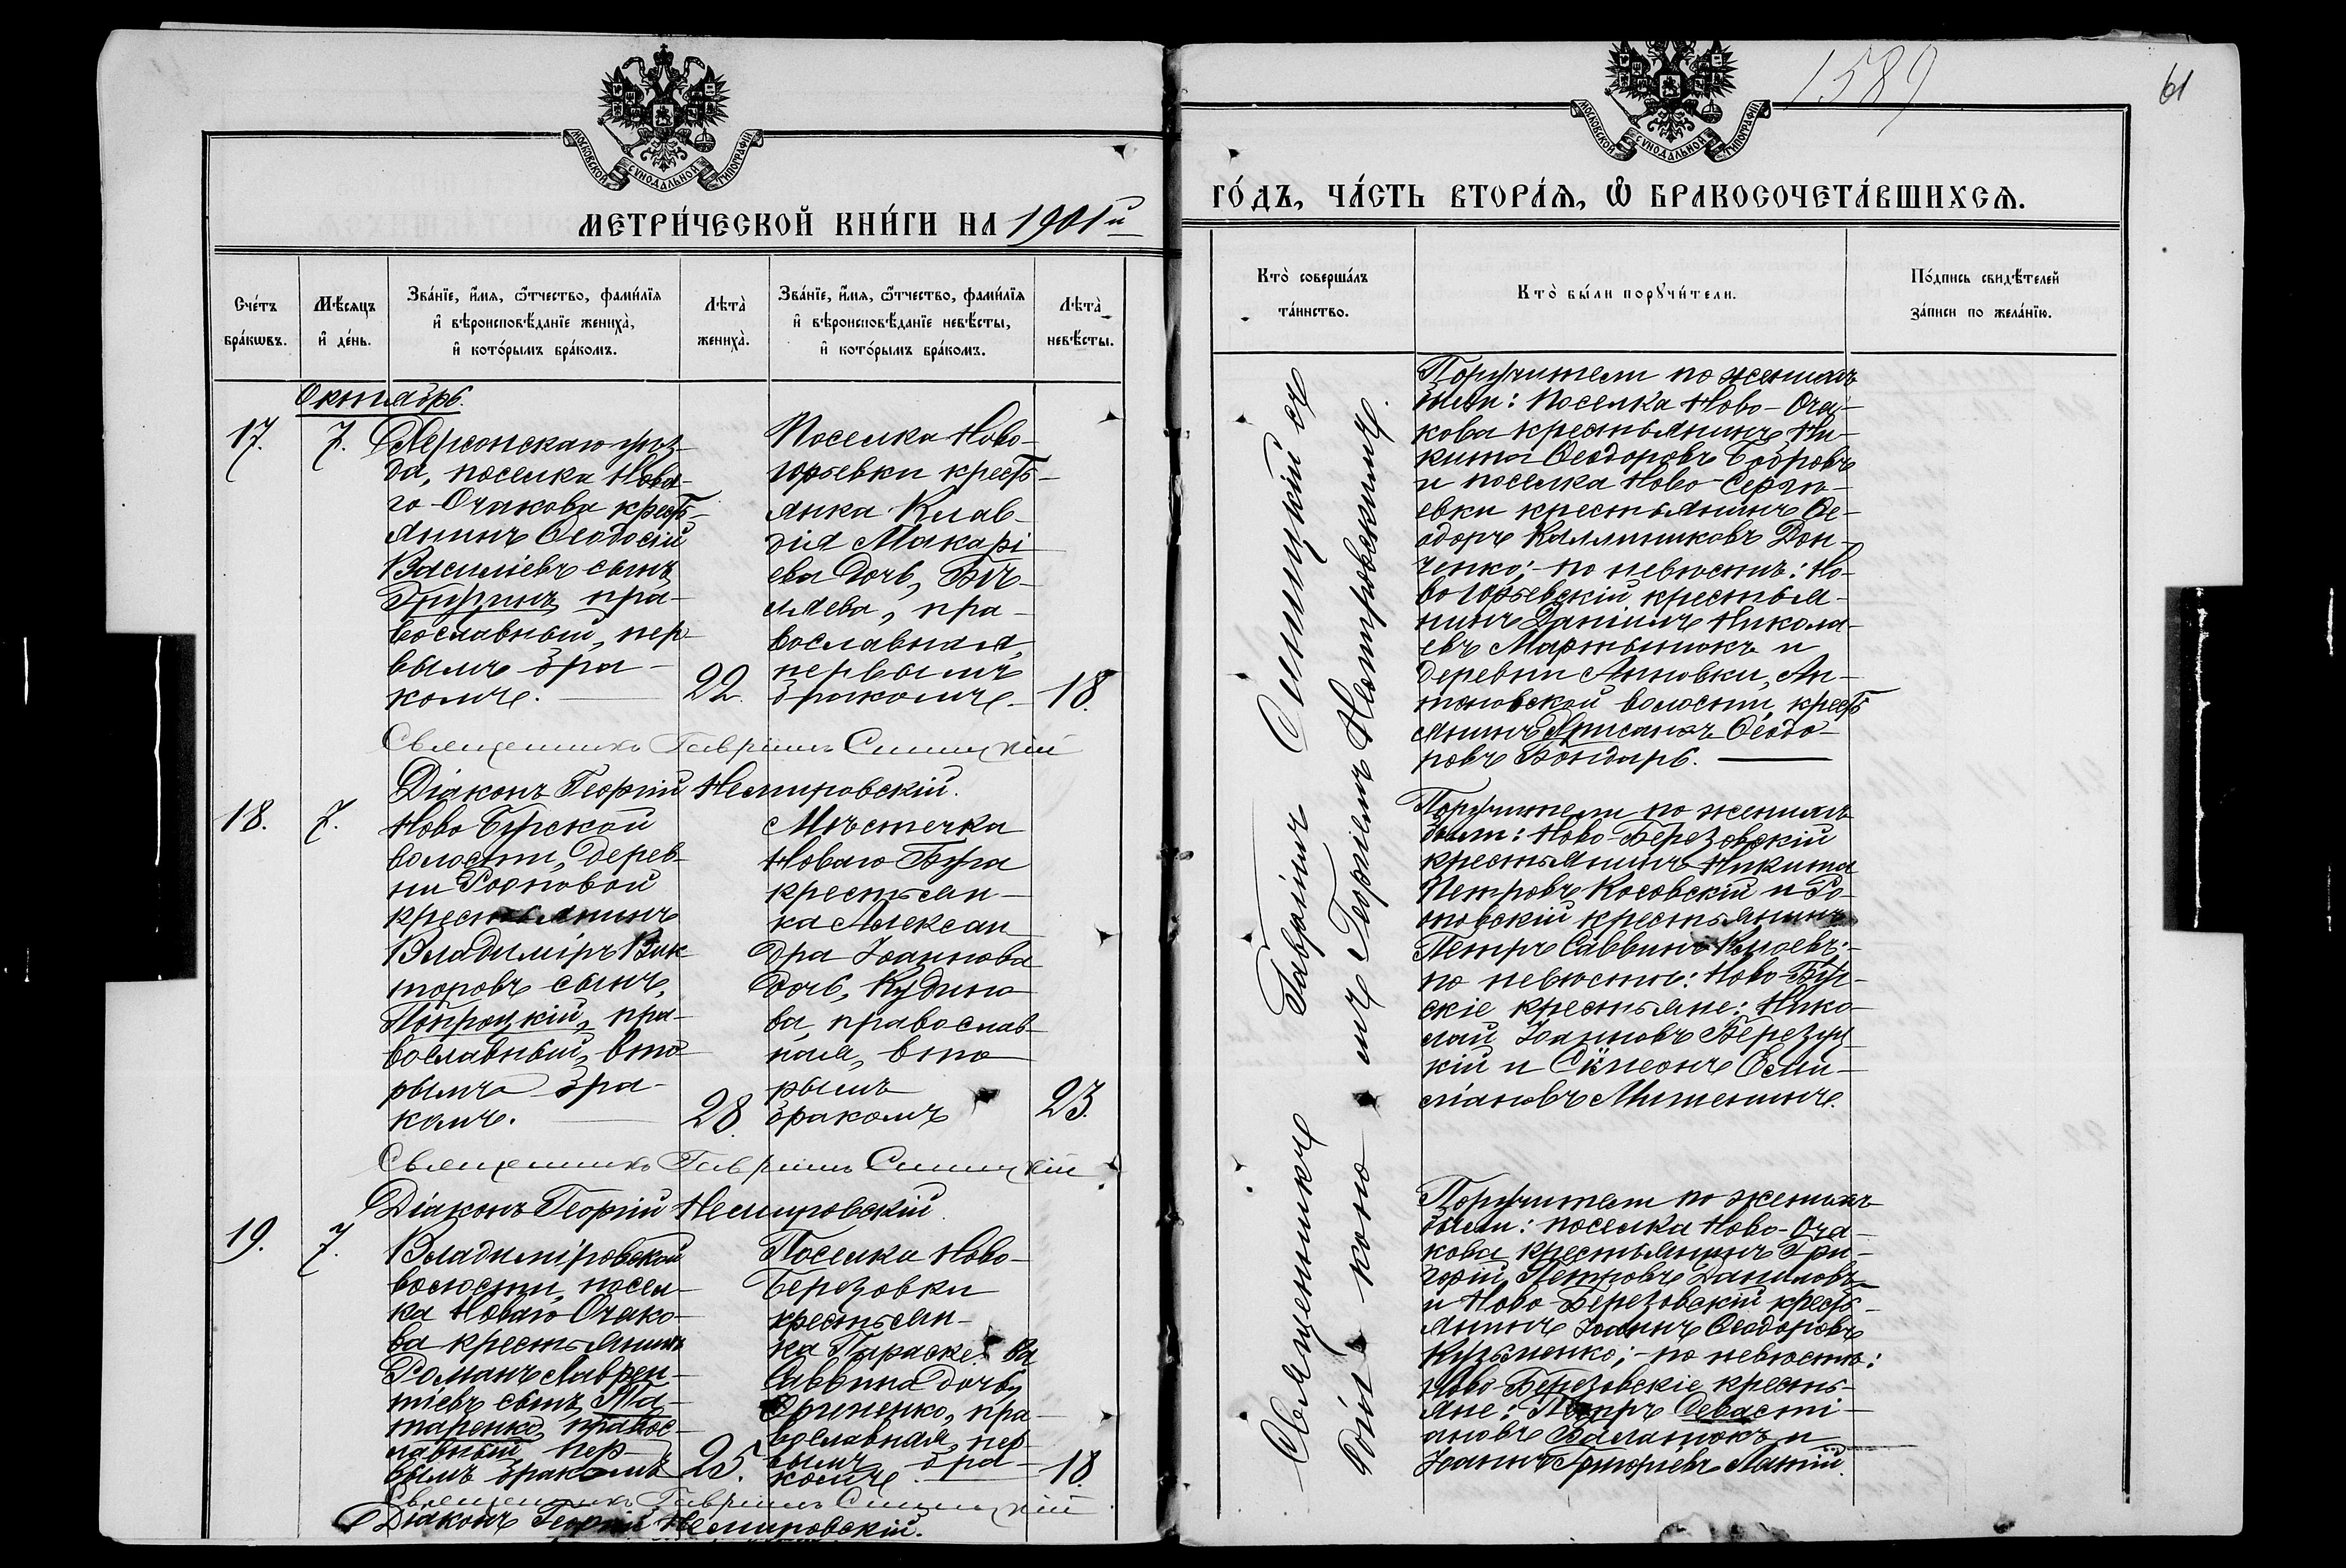 МОСКОВСКОЙ СѴНОДАЛЬНОЙ ТИПОГРАФІИ
МЕТРИ́ЧЕСКОЙ КНИ́ГИ НА 1901й
Сче́тъ бра́кѡвъ.
Мѣ́сяцъ и҆ де́нь.
Зва́нїе, и҆́мя, ѻ҆́тчество, фами́лїя
и҆ вѣроисповѣ́данїе жениха̀,
и҆ кото́рымъ бра́комъ.
Лѣта̀ жениха̀.
Зва́нїе, и҆́мя, ѻ҆́тчество, фами́лїя
и҆ вѣроисповѣ́данїе невѣ́сты,
и҆ кото́рымъ бра́комъ.
Лѣта̀ невѣ́сты.
Октябрь.
17.
7.
Херсонскаго уѣз-
да, поселка Нова-
го-Очакова кресть-
янинъ Ѳеодосій
Василіевъ сынъ
пра-
вославный, пер-
вымъ бра-
комъ.
22.
Поселка Ново-
юрьевки кресть-
янка Клав-
дія Макарі-
ева дочь,
пра-
вославная,
первымъ
бракомъ.
18.
Священникъ Гавріилъ Синицкій
Діаконъ Георгій Немировскій.
18.
7.
Ново Бугской
волости, дерев-
ни
крестьянинъ
Владиміръ Вик-
торовъ сынъ,
пра-
вославный, вто-
рымъ бра-
комъ.
28.
Мѣстечка
Новаго Буга
крестьян-
ка Алексан-
дра Іоаннова
дочь, Кудино-
ва, православ-
ная, вто-
рымъ
бракомъ
23.
Священникъ Гавріилъ Синицкій
Діаконъ Георгій Немировскій.
19.
7.
Владиміровской
волости, посел-
ка Новаго Очако-
ва крестьянинъ
Романъ Лаврен-
тіевъ сынъ, Та-
таренко, правос-
лавный, пер-
вымъ бракомъ
25.
Поселка Ново-
Березовки
крестьян-
ка Параскева
Саввина дочь,
пра-
вославная, пер-
вымъ бра-
комъ.
18.
Священникъ Гавріилъ Синицкій
Діаконъ Георгій Немировскій.
1589
61
МОСКОВСКОЙ СѴНОДАЛЬНОЙ ТИПОГРАФІИ
ГО́ДЪ, ЧА́СТЬ ВТОРА́Я, Ѽ БРАКОСОЧЕТА́ВШИХСЯ.
Кто̀ соверша́лъ
та́инство.
Кто̀ бы́ли порꙋчи́тели.
По́дпись свидѣ́телей
за́писи по жела́нїю.
Священникъ Гавріилъ Синицкій съ
діакономъ Георгіемъ Немировскимъ.
Поручители по женихѣ
были: поселка Ново-Оча-
кова крестьянинъ Ни-
кита Ѳеодоровъ Бобровъ
и поселка Ново-Сергѣ-
евки крестьянинъ Ѳе-
одоръ Каллиниковъ Дон-
ченко; - по невѣстѣ: Но-
воюрьевскій крестья-
нинъ Даніилъ Никола-
евъ Мартынюкъ и
деревни Анновки, Ан-
тоновской волости, кресть-
янинъ Ѳеодо-
ровъ Бондарь.
Поручители по женихѣ
были: Ново-Березовскій
крестьянинъ Никита
Петровъ Косовскій и
крестьянинъ
Петръ Саввинъ
по невѣстѣ: Ново-Буг-
скіе крестьяне: Нико-
лай Іоанновъ Березуц-
кій и Сѵмеонъ
Митенинъ.
Поручители по женихѣ
были: поселка Ново-Оча-
кова крестьянинъ Гри-
горій Петровъ Даниловъ
и Ново-Березовскій кресть-
янинъ Іоаннъ Ѳеодоровъ
Кузьменко; - по невѣстѣ:
Ново-Березовскіе кресть-
яне: Петръ Севасті-
ановъ Баланюкъ и
Іоаннъ Григорьевъ